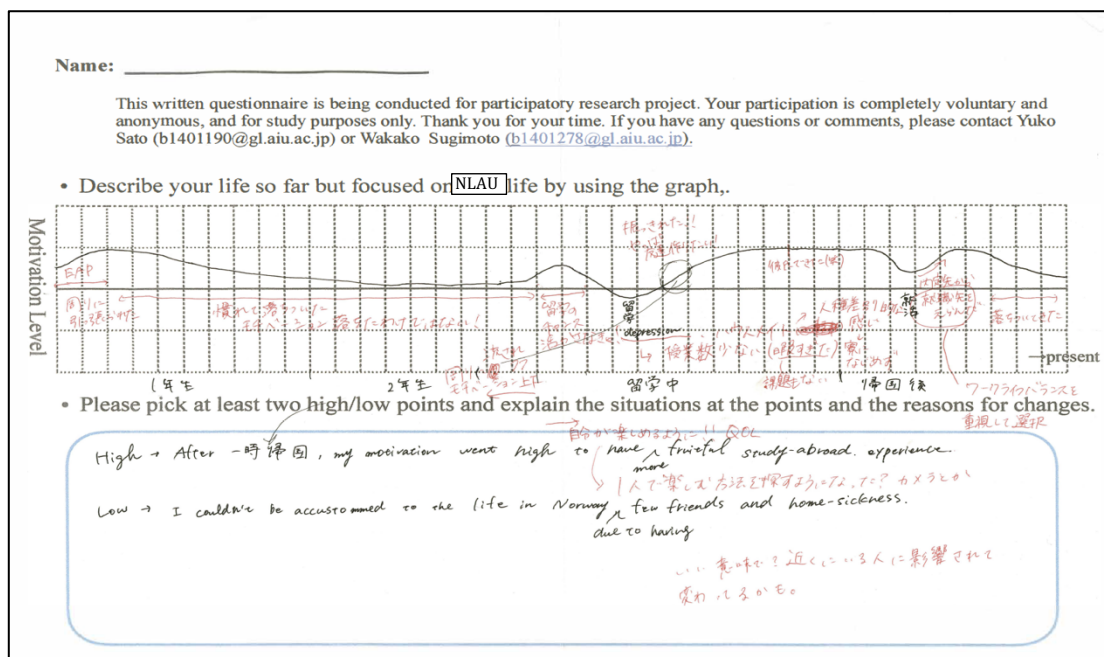 Name:
This written questionnaire is being conducted for participatory research project. Your participation is completely voluntary and
anonymous, and for study purposes only. Thank you for your time. If you have any questions or comments, please contact Yuko
Sato (b1401190@gl.aiu.ac.jp) or Wakako Sugimoto (b1401278@gl.aiu.ac.jp).
• Describe your life so far but focused on NLAU life by using the graph,.
Motivation Level
EAP
周りに
引っ張られた
慣れて落ちついた
モチベーション落ちたわけではない!
留学の
チャンス
depression
授業数少ない(暇すぎた)
課題もない
ハウスメイト
人種差別的な
寮
なじめず
就活
落ちついてきた
周り
モチベーション上昇
→present
1年生
2年生
留学中
帰国後
ワークライフバランスを
重視して選択
• Please pick at least two high/low points and explain the situations at the points and the reasons for changes.
自分が楽しめるように!! QOL
High → After 一時帰国, my motivation went high to have more fruitful study-abroad. experience.
1人で楽しむ方法を探すようになった? カメラとか
Low → I couldn't be accustommed to the life in Norway due to having few friends and home-sickness.
いい意味で?近くにいる人に影響されて
変わってるかも。